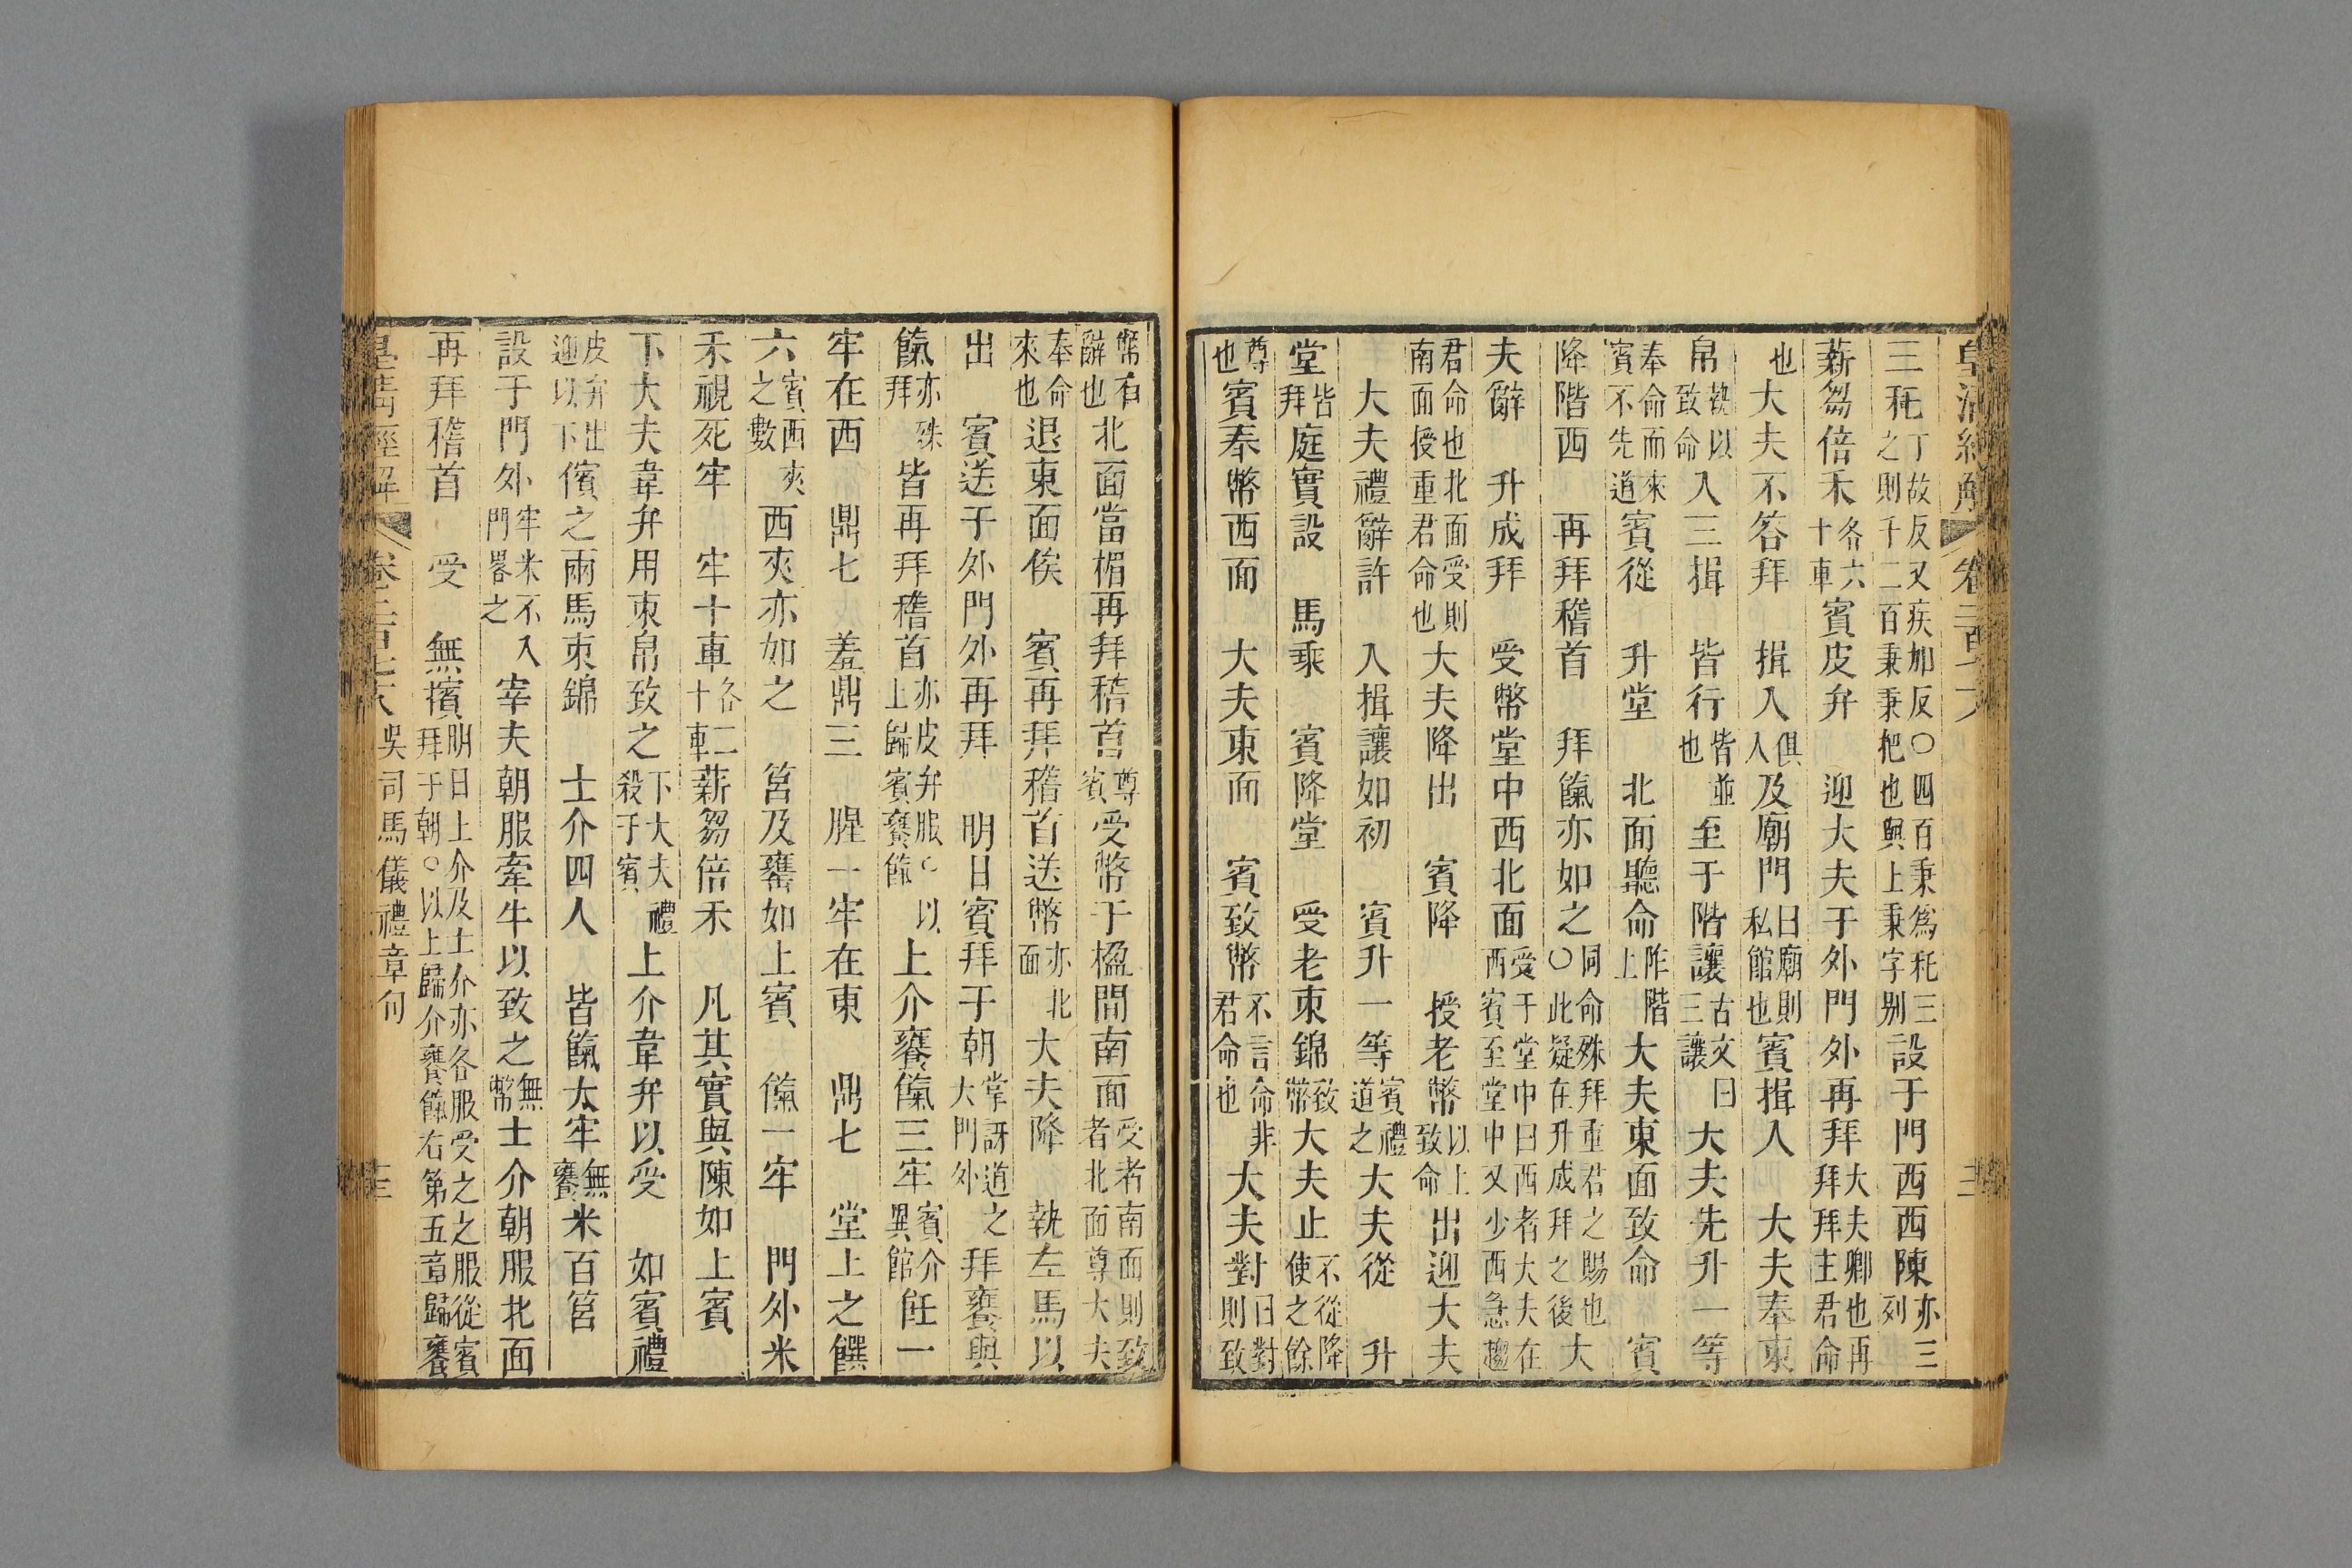 皇清經解 卷二百七十八
三秅丁故反又疾加反○四百秉爲秅三之則千二百秉秉把也與上秉字别設于門西西陳亦三列
薪芻倍禾各六十車賓皮弁 迎大夫于外門外再拜大夫卿也再拜拜主君命
也大夫不答拜 揖入俱入及廟門曰廟則私館也賓揖入 大夫奉束
帛執以致命入三揖 皆行皆並也至于階讓古文曰三讓大夫先升一等
奉命而來賓不先道賓從 升堂 北面聽命阼階上大夫東面致命 賓
降階西 再拜稽首 拜餼亦如之同命殊拜重君之賜也○此疑在升成拜之後大
夫辭 升成拜 受幣堂中西北面受于堂中曰西者大夫在西賓至堂中又少西急趨
君命也北面受則南面授重君命也大夫降出 賓降 授老幣以上致命出迎大夫
大夫禮辭許 入揖讓如初 賓升一等賓禮道之大夫從 升
堂皆拜庭實設 馬乘 賓降堂 受老束錦致幣大夫止不從降使之餘
尊也賓奉幣西面 大夫東面 賓致幣不言命非君命也大夫對曰對則致
幣有辭也北面當楣再拜稽首尊賓受幣于楹間南面受者南面則致者北面尊大夫
奉命來也退東面俟 賓再拜稽首送幣亦北面大夫降 執左馬以
出 賓送于外門外再拜 明日賓拜于朝掌訝道之大門外拜饔與
餼亦殊拜皆再拜稽首亦皮弁服○以上歸賓饔餼上介饔餼三牢賓介異館飪一
牢在西 鼎七 羞鼎三 腥一牢在東 鼎七 堂上之饌
六賓西夾之數西夾亦如之 筥及罋如上賓 餼一牢 門外米
禾視死牢 牢十車各二十車薪芻倍禾 凡其實與陳如上賓
下大夫韋弁用束帛致之下大夫禮殺于賓上介韋弁以受 如賓禮
皮弁出迎以下儐之兩馬束錦 士介四人 皆餼大牢無饔米百筥
設于門外牢米不入門畧之宰夫朝服牽牛以致之無幣士介朝服北面
再拜稽首 受 無擯明日上介及士介亦各服受之之服從賓拜于朝○以上歸介饔餼右第五章歸饔
皇清經解 卷二百七十八 吳司馬儀禮章句 十三